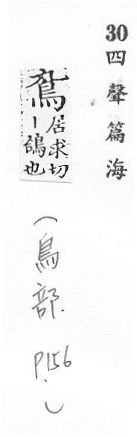 30 四聲篇海
居求切
丨鴿也
(鳥部. P.156)